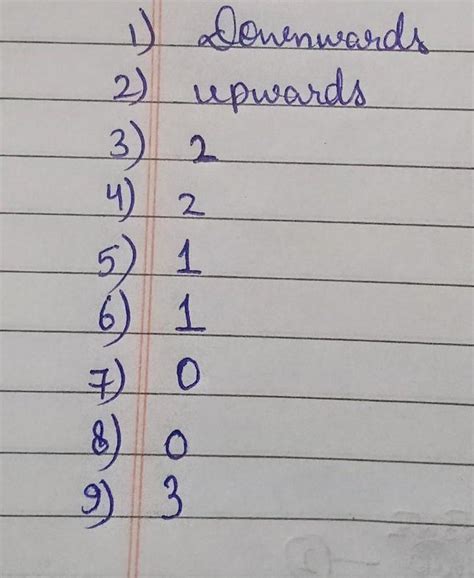 1) Downwards
2) upwards
3) 2
4) 2
5) 1
6) 1
7) 0
8) 0
9) 3